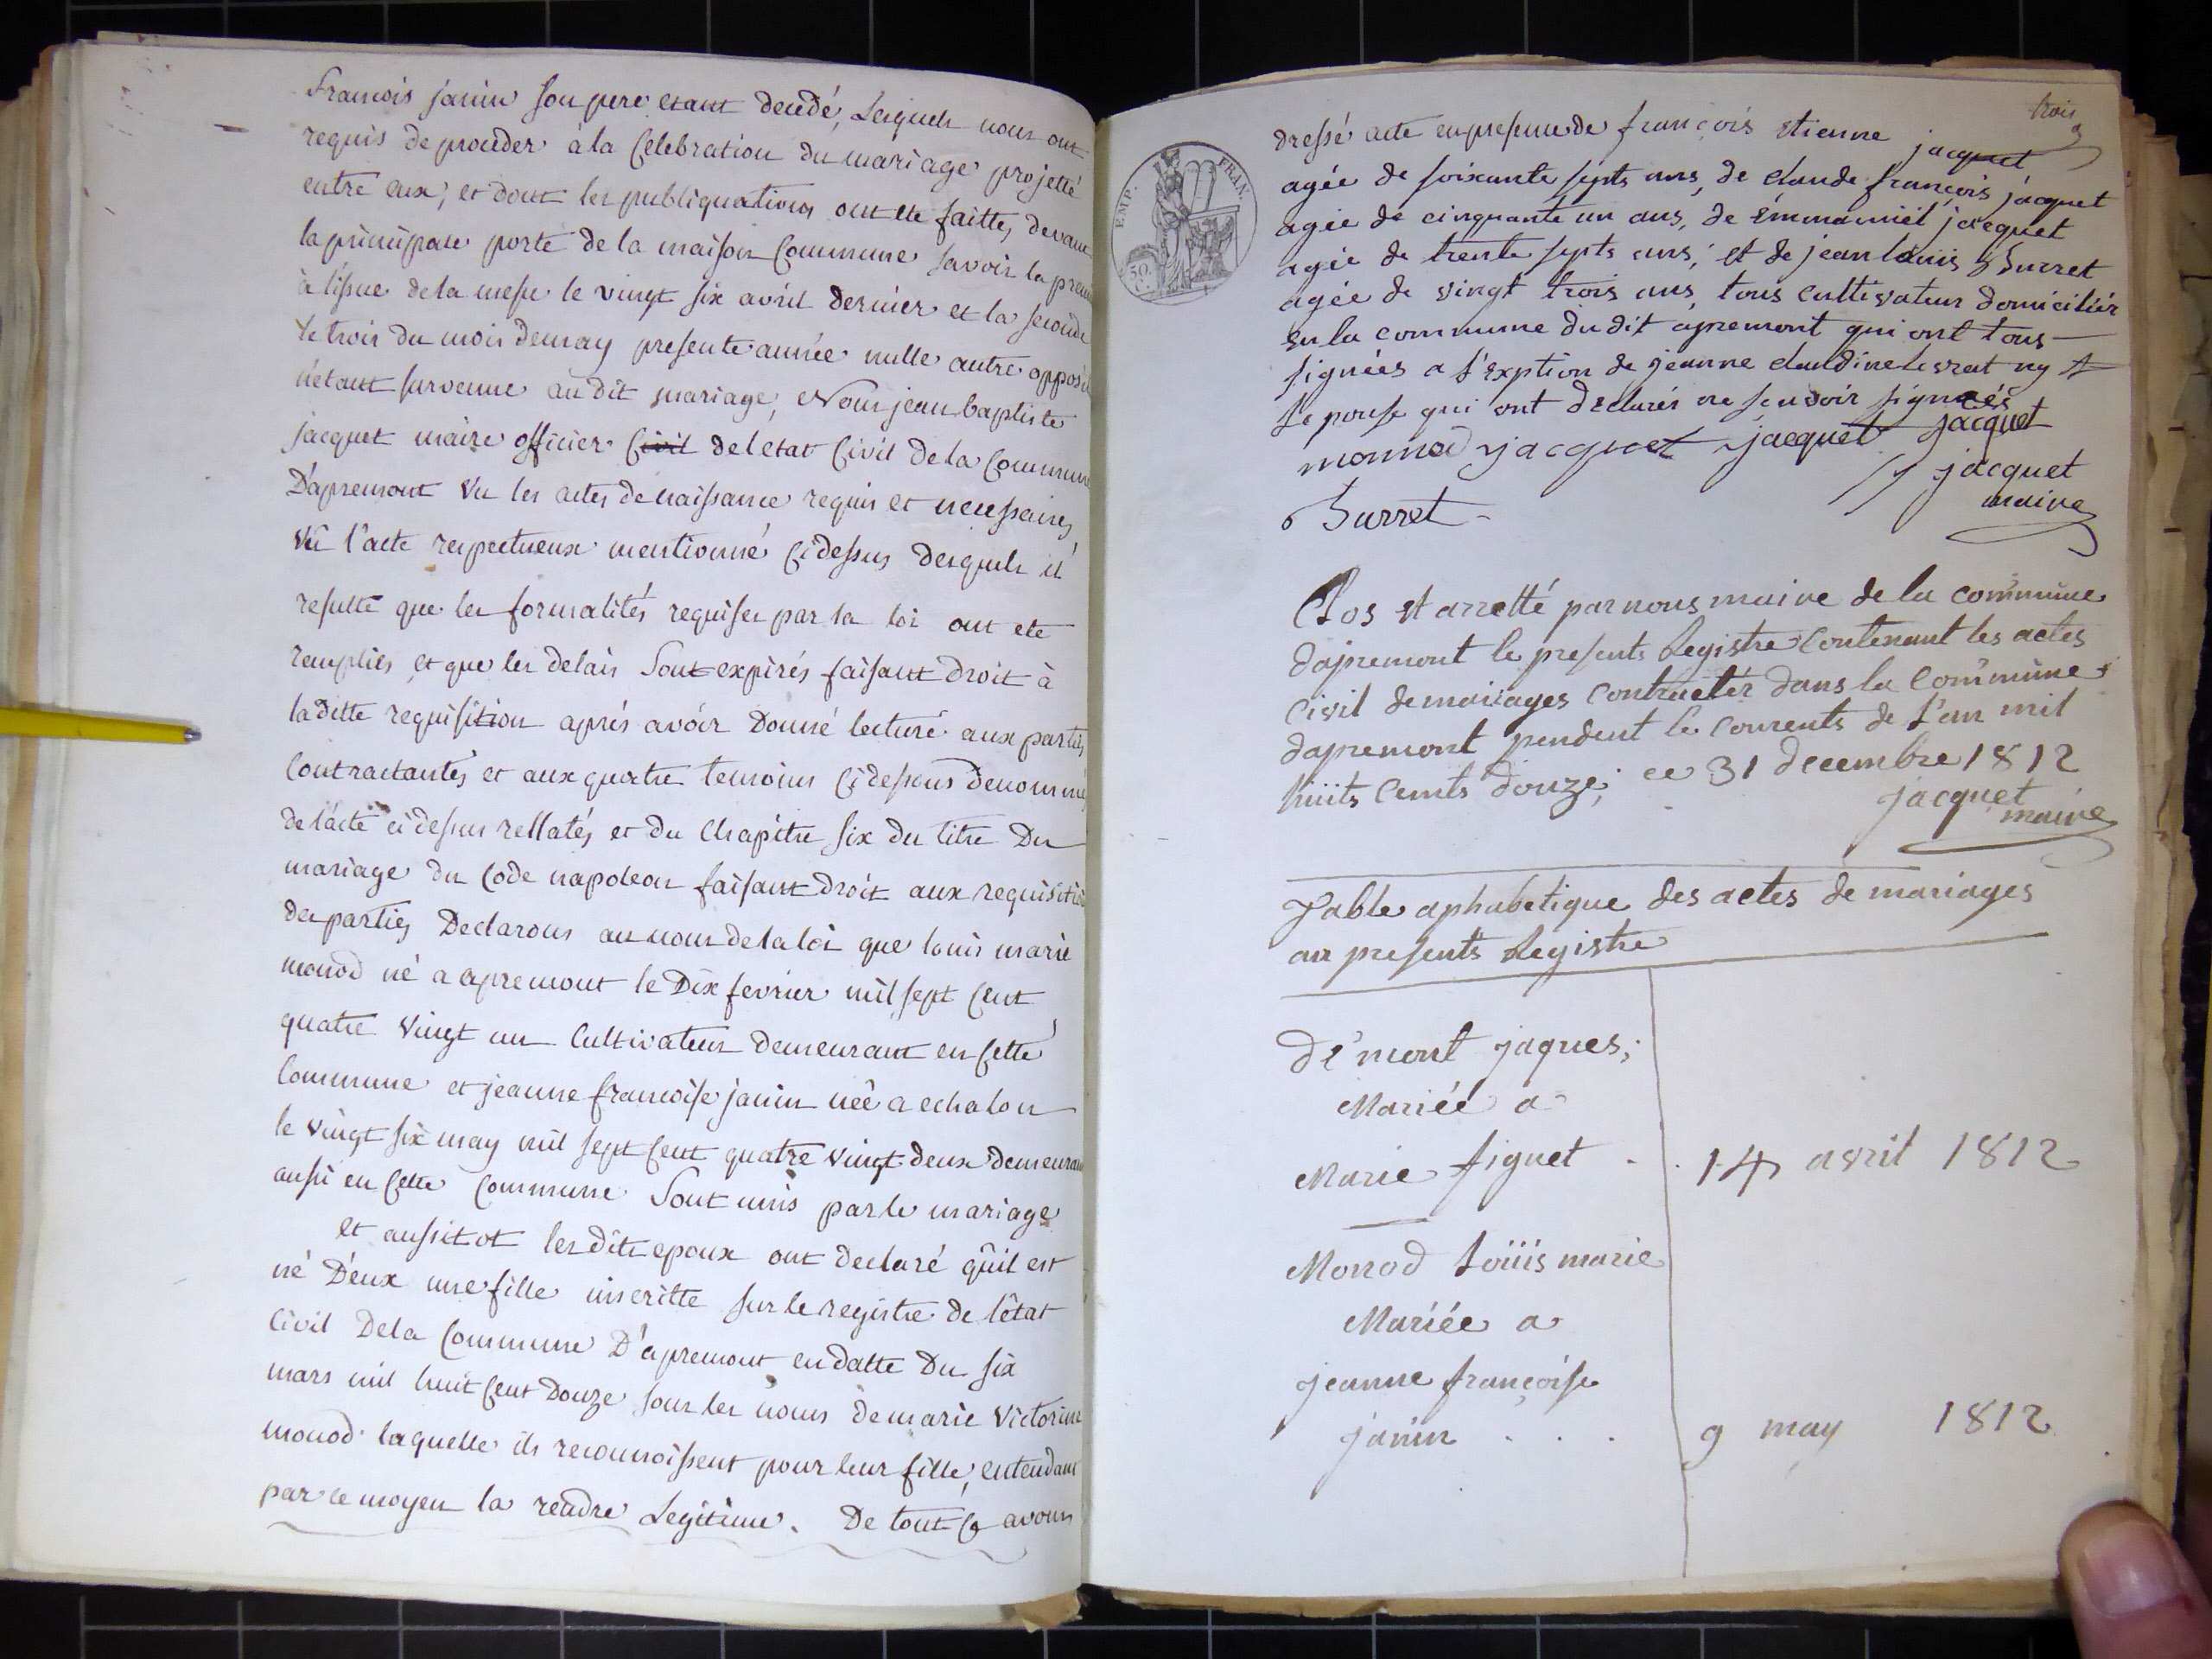 françois janin son pere etant decedé, Lesquels nous ont
requis de proceder à la Celebration du mariage projetté
entre eux, et dont les publiquations ont ete faittes devant
la principale porte de la maison Commune savoir la premi
à l'issue de la messe le vingt six avril dernier et la seconde
le trois du mois de may presente année nulle autre opposi
n'etant survenue au dit mariage, Nous jean baptiste
jacquet maire officier Civil de l'etat Civil de la Commune
D'apremont Vu les actes de naissance requis et necessaires,
Vu l'acte respectueux mentionné Cidessus desquels il
resulte que les formalités requises par la loi ont ete
remplies, et que les delais Sont expirés faisant droit à
la ditte requisition aprés avoir Donné lecture aux parties
Contractantes et aux quatre temoins Cidessous denommé
de l'acte cidessus rellatés et du Chapitre six du titre Du
mariage du Code napoleon faisant droit aux requisitio
des parties Declarons au nom de la loi que louis marie
monod né a apremont le Dix fevrier mil sept Cent
quatre vingt un Cultivateur demeurant en Cette
Commune et jeanne francoise janin née a echalon
le vingt six may mil sept Cent quatre vingt deux demeurant
aussi en Cette Commune Sont unis par le mariage
et aussitot les dits epoux ont declaré qu'il est
né D'eux une fille inscritte sur le registre de l'état
Civil De la Commune D'apremont en datte Du six
mars mil huit Cent Douze sous les noms de marie Victorine
monod laquelle ils reconnoissent pour leur fille, entendant
par ce moyen la rendre Legitime. De tout Ce avons
trois
dressé acte en presence de françois etienne jacquet
agée de soixante septs ans, de claude françois jacquet
agée de cinquante un ans, de emmanuiel jacquet
agée de trente septs ans, et de jean louis Burret
agée de vingt trois ans, tous cultivateur domiciliér
en la commune du dit apremont qui ont tous
signées a l'exption de jeanne claudine levrat ny
l'epouse qui ont declarés ne seavoir signées
monnod jacquet jacquet jacquet
jacquet
maire
Burret
Clos et arretté par nous maire de la commune
dapremont le presents Registre Contenant les actes
Civil de mariages contractér dans la Commune
dapremont pendent le courents de l'an mil
huits Cents douze; ce 31 decembre 1812
jacquet
maire
Table aphabetique des actes de mariages
au presents Registre
De'mont jaques;
Mariée a
Marie figuet . . 14 avril 1812
Monod Loüis marie
Mariée a
jeanne françoise
janin . . . 9 may 1812
EMP. FRAN.
50. C.